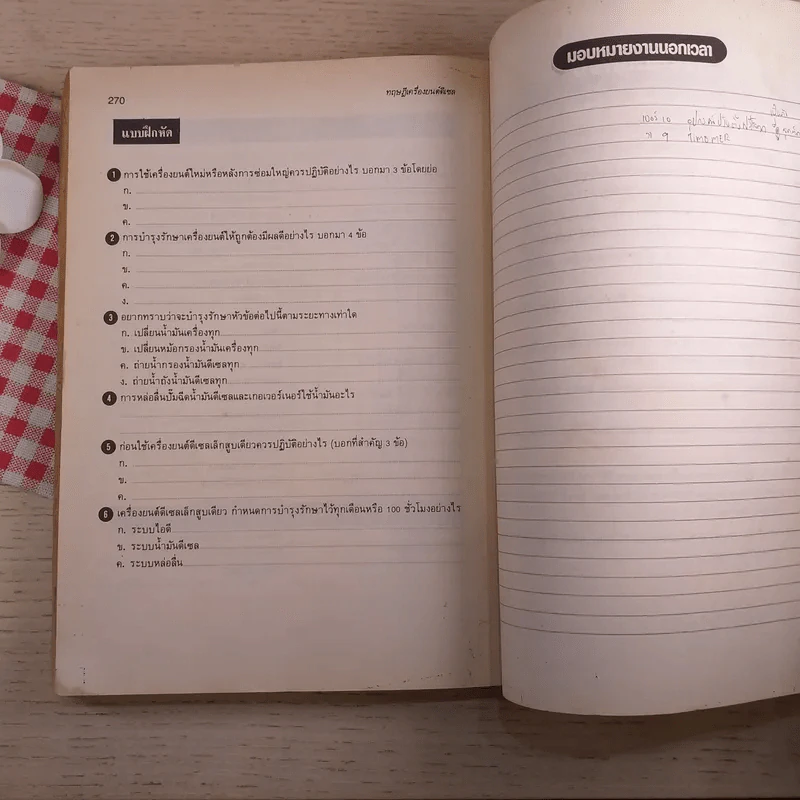 270
ทฤษฎีเครื่องยนต์ดีเซล
แบบฝึกหัด
1 การใช้เครื่องยนต์ใหม่หรือหลังการซ่อมใหญ่ควรปฏิบัติอย่างไร บอกมา 3 ข้อโดยย่อ
ก.
ข.
ค.
2 การบำรุงรักษาเครื่องยนต์ให้ถูกต้องมีผลดีอย่างไร บอกมา 4 ข้อ
ก.
ข.
ค.
ง.
3 อยากทราบว่าจะบำรุงรักษาหัวข้อต่อไปนี้ตามระยะทางเท่าใด
ก. เปลี่ยนน้ำมันเครื่องทุก
ข. เปลี่ยนหม้อกรองน้ำมันเครื่องทุก
ค. ถ่ายน้ำกรองน้ำมันดีเซลทุก
ง. ถ่ายน้ำถังน้ำมันดีเซลทุก
4 การหล่อลื่นปั๊มฉีดน้ำมันดีเซลและเกอเวอร์เนอร์ใช้น้ำมันอะไร
5 ก่อนใช้เครื่องยนต์ดีเซลเล็กสูบเดียวควรปฏิบัติอย่างไร (บอกที่สำคัญ 3 ข้อ)
ก.
ข.
ค.
6 เครื่องยนต์ดีเซลเล็กสูบเดียว กำหนดการบำรุงรักษาไว้ทุกเดือนหรือ 100 ชั่วโมงอย่างไร
ก. ระบบไอดี
ข. ระบบน้ำมันดีเซล
ค. ระบบหล่อลื่น
มอบหมายงานนอกเวลา
10
9